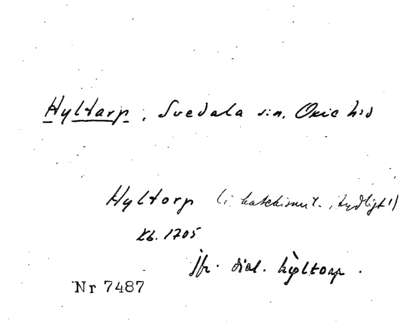 Hyltarp, Svedala sn, Oxie hd
Hyltorp (i katekismul. , tydligt!)
kb. 1705
jfr. dial. hyltorp.
Nr 7487